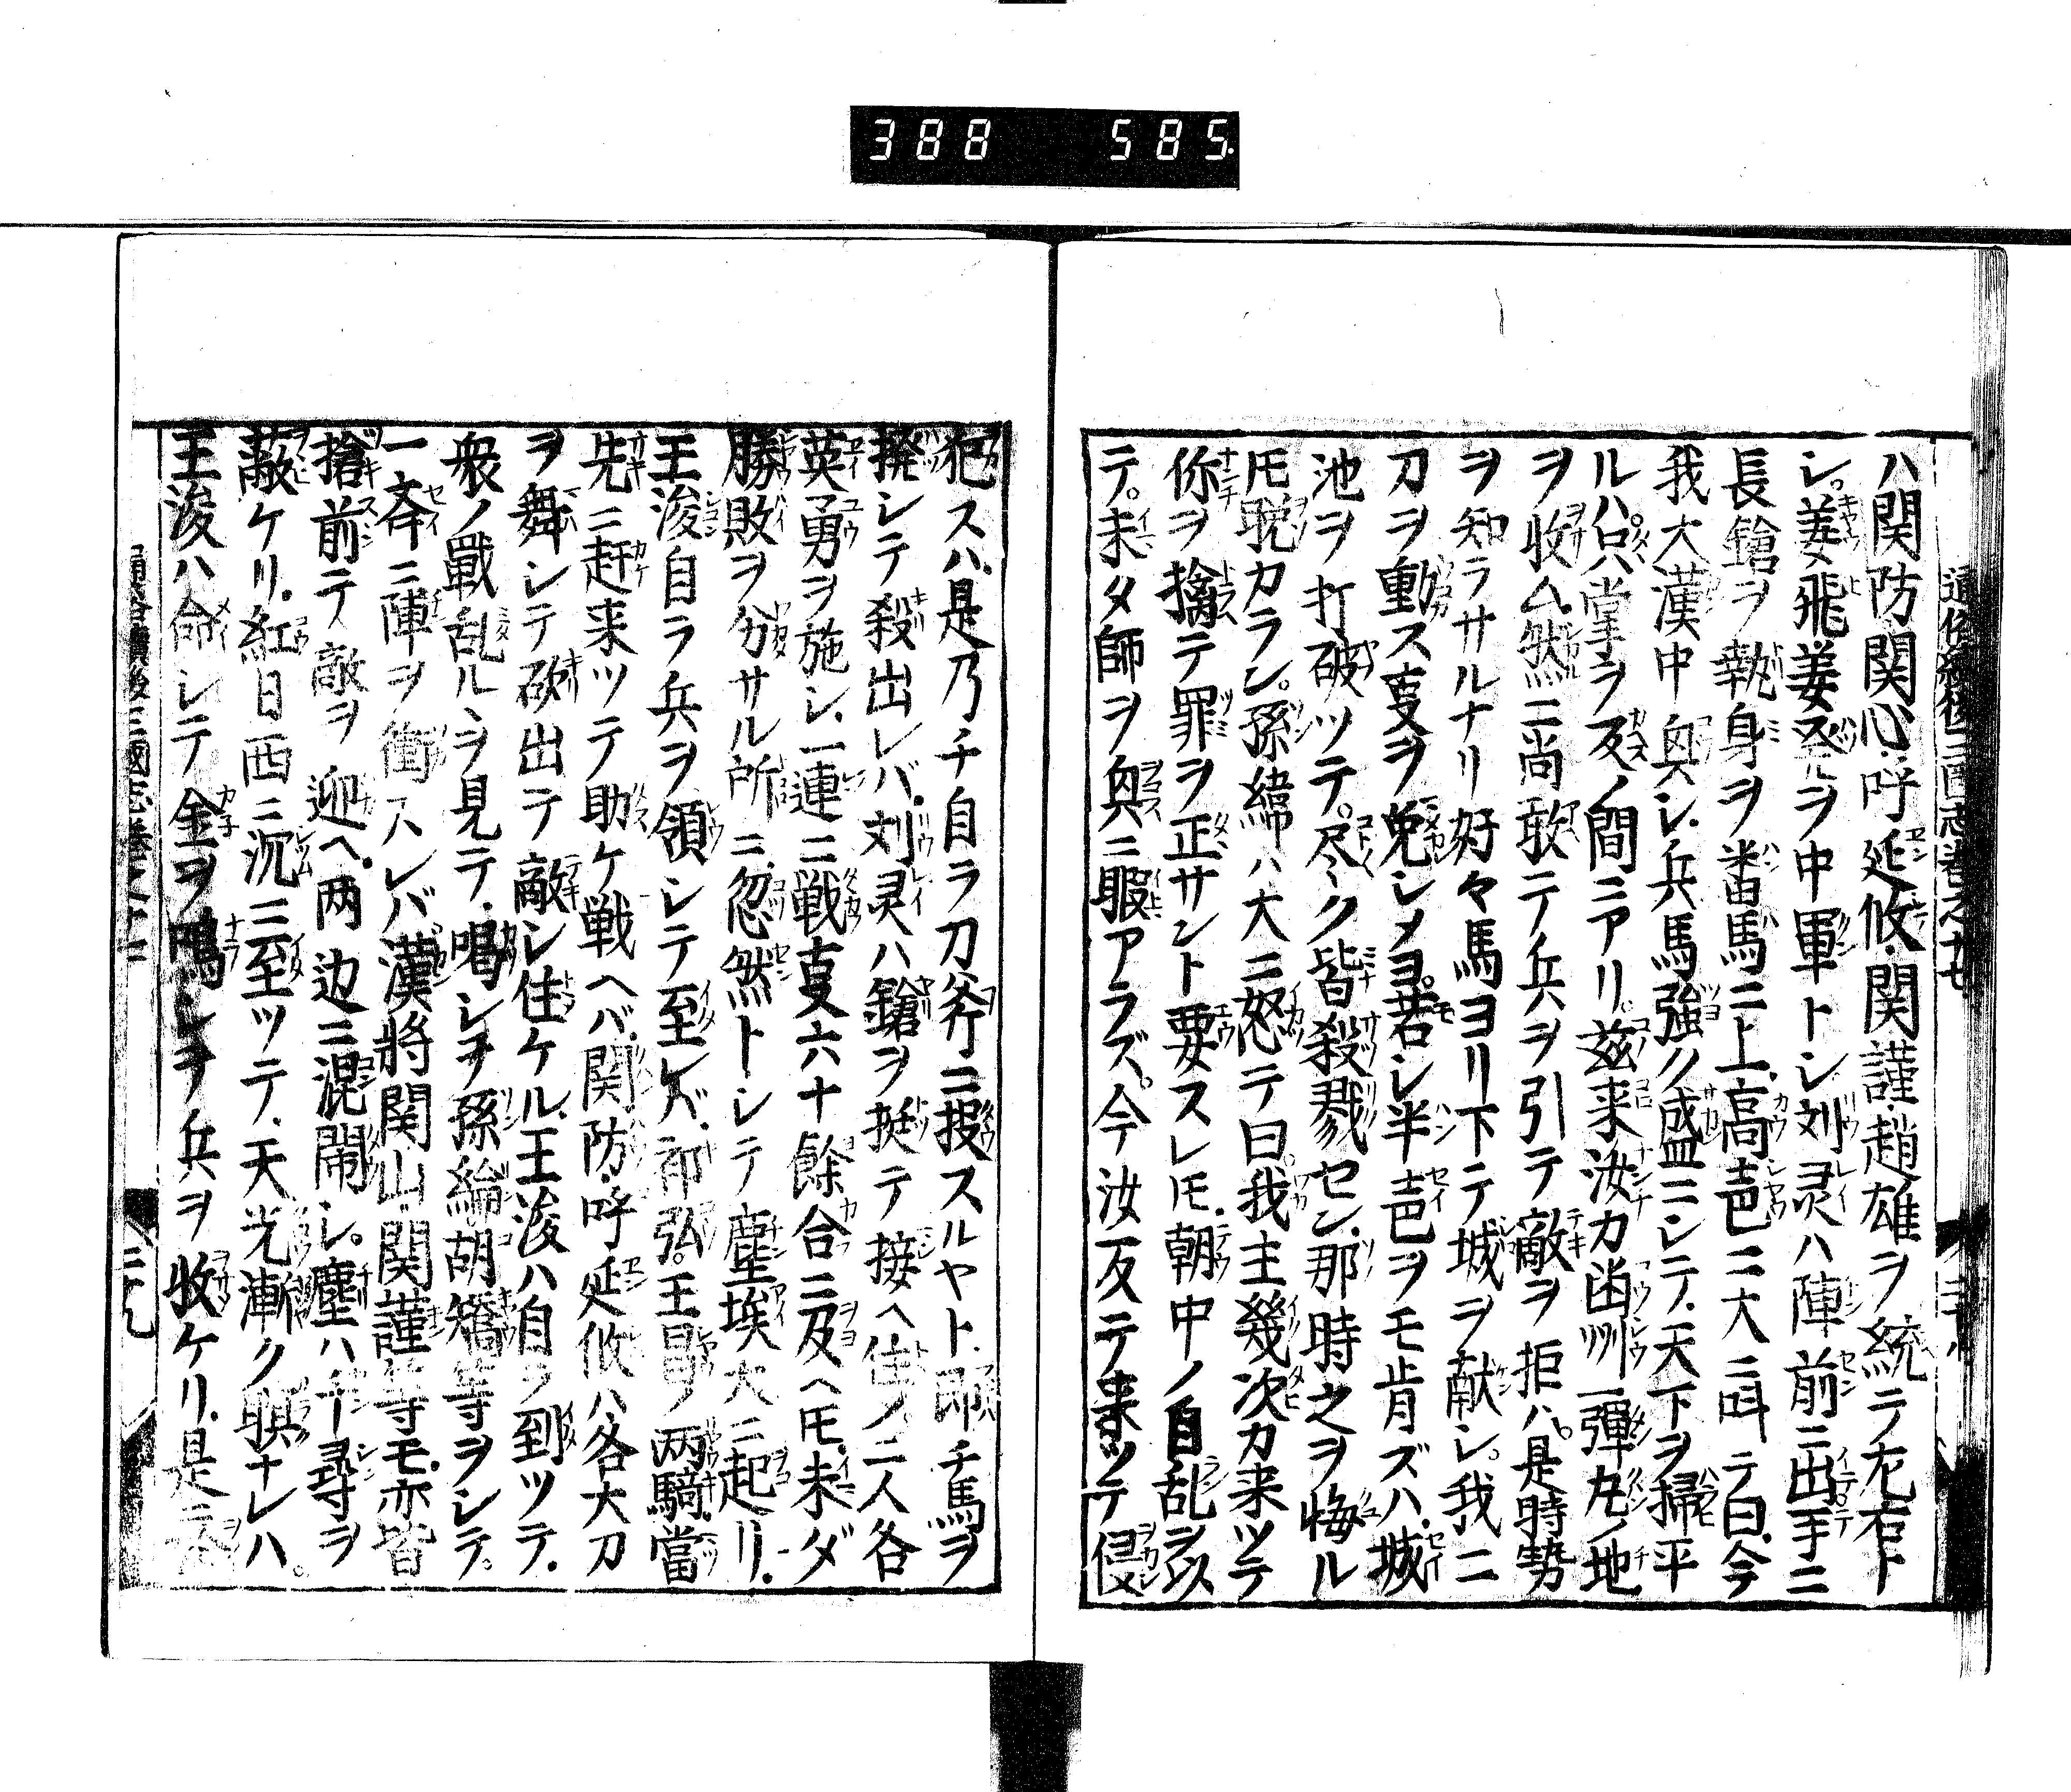 388 585.
通俗續後三國志巻之十七
ハ関防関心呼延攸関謹趙雄ヲ統テ左右ト
シ姜飛姜發ヲ中軍トシ刘灵ハ陣前ニ出手ニ
長鎗ヲ執身ヲ畨馬ニ上高声ニ大ニ叫テ曰今
我大漢中興シ兵馬強ク盛ニシテ天下ヲ掃平
ルハ只掌ヲ反ノ間ニアリ兹来汝カ幽州一彈丸ノ地
ヲ收ム然ニ尚敢テ兵ヲ引テ敵ヲ拒ハ是時勢
ヲ知ラサルナリ好々馬ヨリ下テ城ヲ献シ我ニ
刀ヲ動ス叓ヲ免シメヨ若シ半声ヲモ肯ズハ城
池ヲ打破ツテ尽ク皆殺戮セン那時之ヲ悔ル
𪜈脱カラン孫緯ハ大ニ怒テ曰我主幾次カ来ツテ
你ヲ擒テ罪ヲ正サント要スレ𪜈朝中ノ自乱ヲ以
テ未タ師ヲ興ニ暇アラズ今汝反テ来ツテ侵
犯スハ是乃チ自ラ刀斧ニ投スルヤト即チ馬ヲ
撥シテ殺出レバ刘灵ハ鎗ヲ挺テ接ヘ住ノ二人各
英勇ヲ施シ一連ニ戦叓六十餘合ニ及ヘ𪜈未ダ
勝敗ヲ分サル所ニ忽然トシテ塵埃大ニ起リ
王浚自ラ兵ヲ領シテ至レバ祁弘王昌ノ两騎當
先ニ赶来ツテ助ケ戦ヘバ関防呼延攸ハ各大刀
ヲ舞シテ砍出テ敵シ住ケル王浚ハ自ラ到ツテ
衆ノ戰乱ルヽヲ見テ喝シテ孫綸胡矯等ヲシテ
一斉ニ陣ヲ衝スレバ漢將関山関謹等モ亦皆
搶前テ敵ヲ迎ヘ两边ニ混閙シ塵ハ千尋ヲ
蔽ケリ紅日西ニ沉ニ至ツテ天光漸ク暝ナレハ
王浚ハ命シテ金ヲ鳴シテ兵ヲ收ケリ是ニ於
二十九